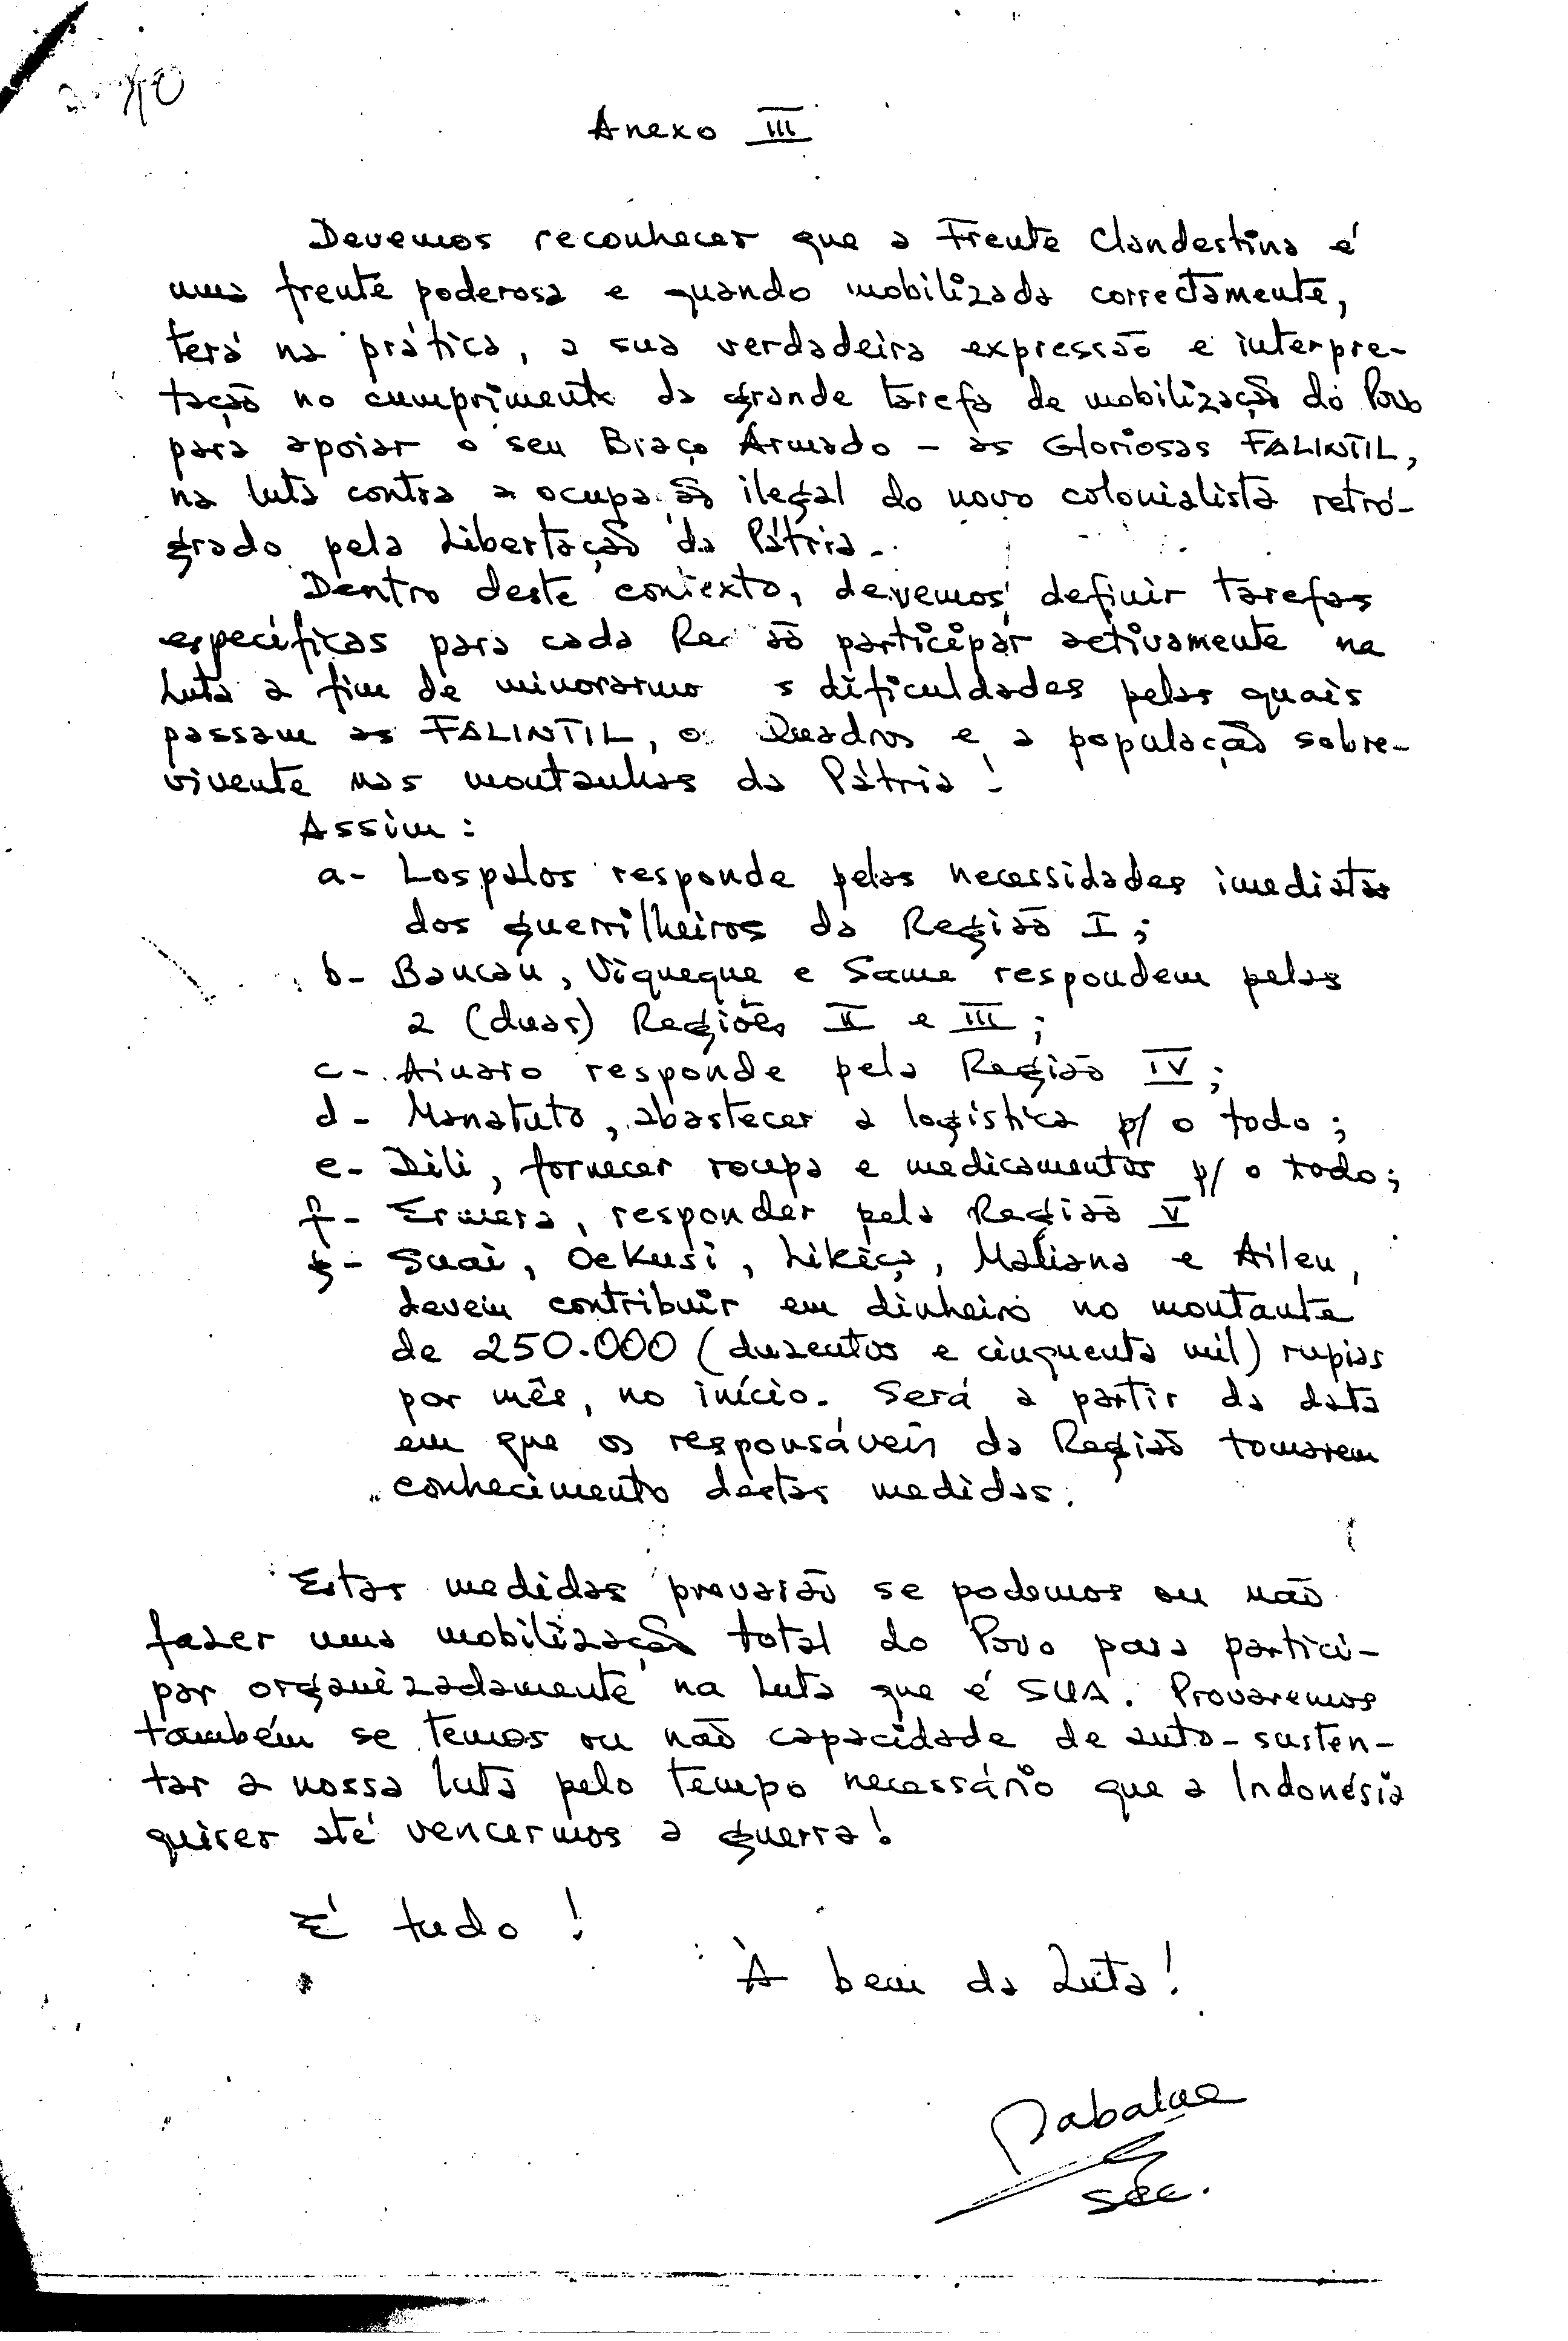 Anexo III
Devemos reconhecer que a Frente Clandestina é
uma frente poderosa e quando mobilizada correctamente,
terá na prática, a sua verdadeira expressão e interpre-
tação no cumprimento da grande tarefa de mobilização do Povo
para apoiar o seu Braço Armado - as Gloriosas FALINTIL,
na luta contra a ocupa ão ilegal do novo colonialista retró-
grado pela Libertação da Pátria.
Dentro deste contexto, devemos definir tarefas
específicas para cada Re ão participar activamente na
Luta a fim de minorarmo s dificuldades pelas quais
passam as FALINTIL, o Quadros e a população sobre-
vivente nas montanhas da Pátria!
Assim:
a- Lospalos responde pelas necessidades imediatas
dos guerrilheiros da Região I;
b- Baucau, Viqueque e Same respondem pelas
2 (duas) Regiões II e III;
c- Ainaro responde pela Região IV;
d- Manatuto, abastecer a logística p/ o todo;
e- Dili, fornecer roupa e medicamentos p/ o todo;
f- Ermera, responder pela Região V
g- Suai, Oekusi, Likiça, Maliana e Aileu,
devem contribuir em dinheiro no montante
de 250.000 (duzentos e cinquenta mil) rupias
por mês, no início. Será a partir da data
em que os responsáveis da Região tomarem
conhecimento destas medidas.
Estas medidas provarão se podemos ou não
fazer uma mobilização total do Povo para partici-
par organizadamente na Luta que é SUA. Provaremos
também se temos ou não capacidade de auto-susten-
tar a nossa luta pelo tempo necessário que a Indonésia
quiser até vencermos a guerra!
É tudo!
À bem da Luta!
Sec.